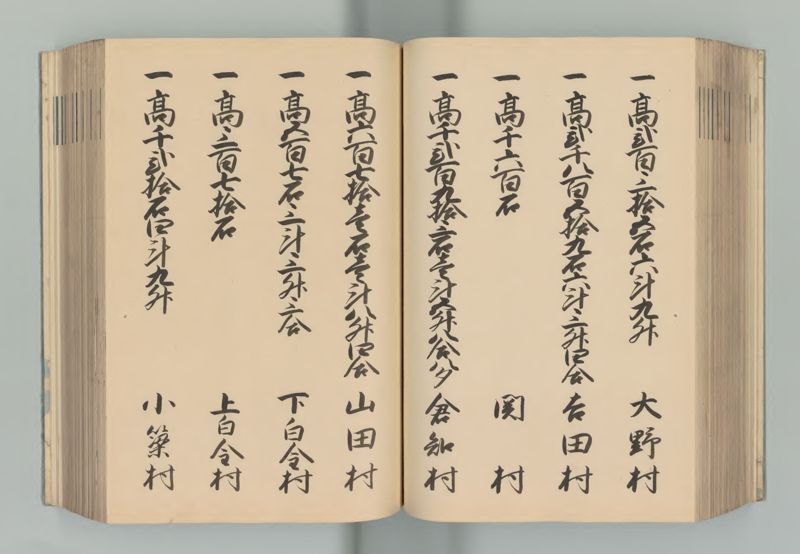 一高弐百三拾五石六斗九升 大野村
一高弐千八百五拾九石六斗三升四合 吉田村
一高千六百石 関村
一高千弐百九拾三石壱斗五升八合八夕 倉知村
一高六百七拾壱石壱斗八升四合 山田村
一高五百七石二斗三升三合 下白金村
一高三百七拾石 上白金村
一高千弐拾石四斗九升 小築村